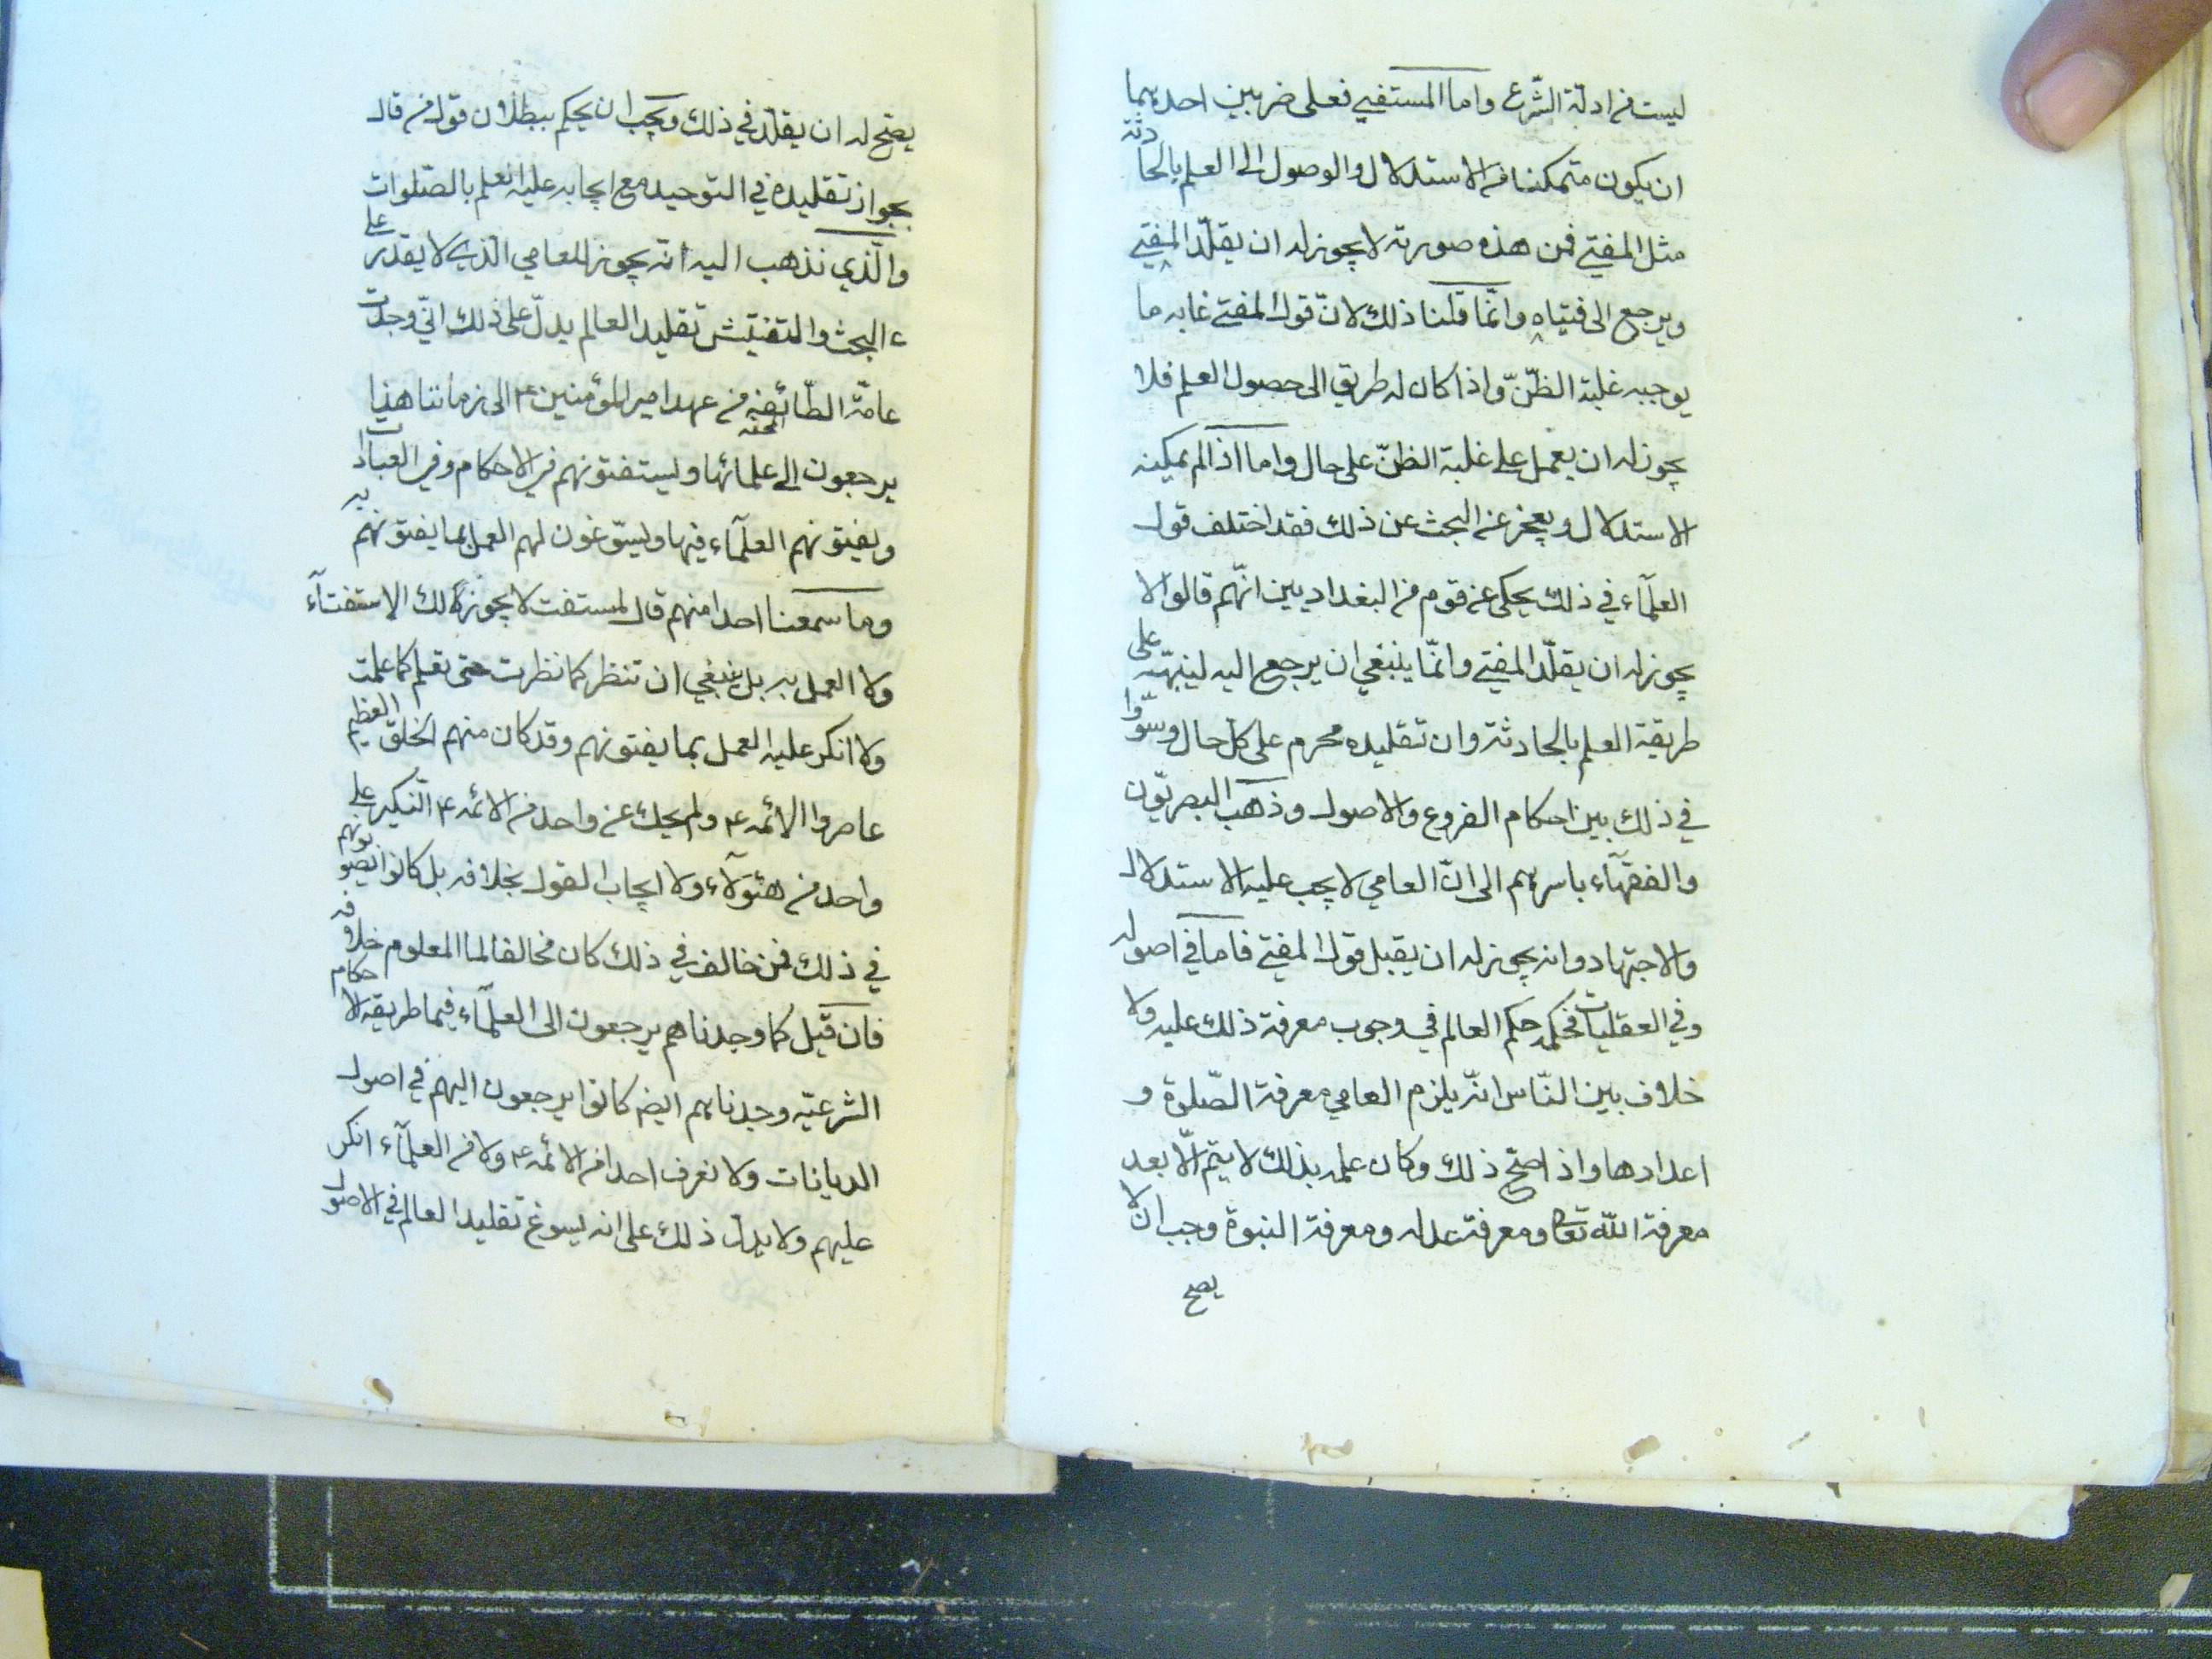 ليست من ادلّة الشّرع واما المستفتي فعلى ضربين احدهما
ان يكون متمكنا من الاستدلال والوصول الى العلم بالحادثة
مثل المفتي فمن هذه صورته لا يجوز له ان يقلّد المفتي
ويرجع الى فتياه وانّما قلنا ذلك لانّ قول المفتي غايه ما
يوجبه غلبة الظنّ واذا كان له طريق الى حصول العلم فلا
يجوز له ان يعمل على غلبة الظنّ على حال واما اذا لم يمكنه
الاستدلال ويعجز عن البحث عن ذلك فقد اختلف قول
العلمآء في ذلك يحكى عن قوم من البغداديين انّهم قالوا لا
يجوز له ان يقلّد المفتي وانّما ينبغي ان يرجع اليه لينبهّه على
طريقة العلم بالحادثة وان تقليده محرم على كل حال وسوّوا
في ذلك بين احكام الفروع والاصول وذهب البصريّون
والفقهآء باسرهم الى انّ العامي لا يجب عليه الاستدلال
والاجتهاد وانه يجوز له ان يقبل قول المفتي فاما في اصوله
وفي العقليات فحكمه حكم العالم في وجوب معرفة ذلك عليه ولا
خلاف بين النّاس انّه يلزم العامي معرفة الصّلوة و
اعدادها واذا صحّ ذلك وكان علمه بذلك لا يتم الّا بعد
معرفة اللّه تعا ومعرفة عدله ومعرفة النبوة وجب ان لا
يصح
يصحّ له ان يقلّد في ذلك ويجب ان يحكم ببطلان قول من قال
بجواز تقليده في التوحيد مع ايجابه عليه العلم بالصّلوات
والّذي نذهب اليه انّه يجوز للعامي الّذي لا يقدر على
البحث والتفتيش تقليد العالم يدلّ على ذلك انّي وجدت
عامّة الطّائفة المحقه من عهد امير المؤمنين ع الى زماننا هذا
يرجعون الى علمائها ويستفتونهم في الاحكام وفي العبادات
ويفتونهم العلمآء فيها ويسوّغون لهم العمل بما يفتونهم به
وما سمعنا احدا منهم قال لمستفت لا يجوز لك الاستفتآء
ولا العمل به بل ينبغي ان تنظر كما نظرت حتى تعلم كما علمت
ولا انكر عليه العمل بما يفتونهم وقد كان منهم الخلق العظيم
عاصروا الائمه ع ولم يحك عن واحد من الائمه ع النّكير على
واحد من هئولآء ولا ايجاب القول بخلافه بل كانوا يصوبونهم
في ذلك فمن خالف في ذلك كان مخالفا لما المعلوم خلافه
فان قيل كما وجدناهم يرجعون الى العلمآء فيما طريقه الاحكام
الشرعيّه وجدناهم ايضا كانوا يرجعون اليهم في اصول
الديانات ولا نعرف احدا من الائمه ع ولا من العلمآء انكر
عليهم ولا يدلّ ذلك على انه يسوغ تقليد العالم في الاصول